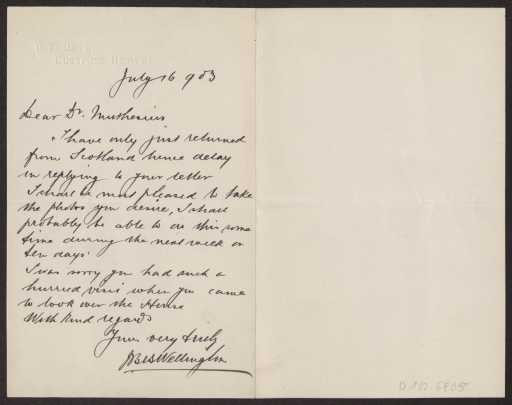 July 16 903
Dear Dr. Muthesius
I have only just returned
from Scotland hence delay
in replying to your letter
I shall be most pleased to take
the photos you desire, I shall
probably be able to do this some
time during the next week or
ten days.
I was sorry you had such a
hurried visit when you came
to look over the House
With kind regards
Yours very truly
JBBWellington